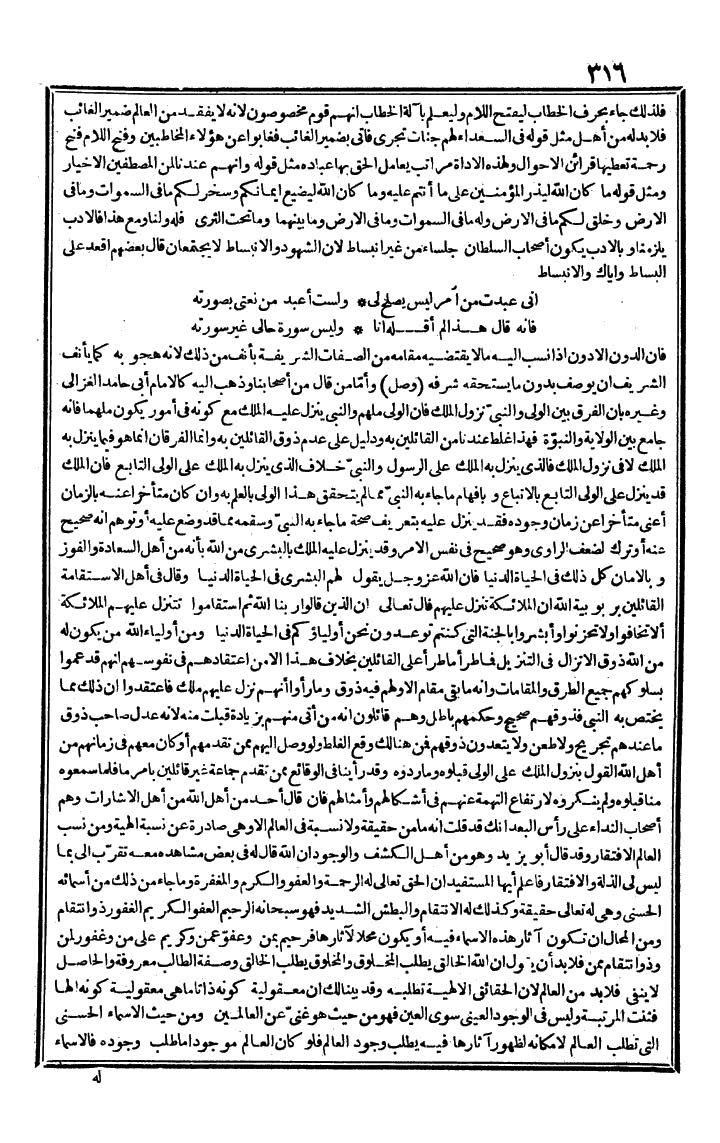 ٣١٦
فلذلك جاء بحرف الخطاب ليفتح اللام وليعلم بآلة الخطاب انهم قوم مخصوصون لانه لا يفقد من العالم ضمير الغائب
فلا بد له من أهل مثل قوله فى السعداء لهم جنات تجرى فأتى بضمير الغائب فغابوا عن هؤلاء المخاطبين وفتح اللام فتح
رحمة تعطيها قرائن الاحوال ولهذه الاداة مراتب يعامل الحق بها عباده مثل قوله وانهم عندنا لمن المصطفين الاخيار
ومثل قوله ما كان الله ليذر المؤمنين على ما أنتم عليه وما كان الله ليضيع ايمانكم وسخر لكم ما فى السموات وما فى
الارض وخلق لكم ما فى الارض وله ما فى السموات وما فى الارض وما بينهما وما تحت الثرى فله ولنا ومع هذا فالادب
يلزمنا وبالادب يكون أصحاب السلطان جلساءه من غير انبساط لان الشهود والانبساط لا يجتمعان قال بعضهم اقعد على
البساط واياك والانبساط
انى عبدت من أمر ليس يصلح لى * ولست أعبد من نعتى بصورته
فانه قال هذا لم أقله أنا * وليس سورة حالى غير سورته
فان الدون الادون اذا نسب اليه ما لا يقتضيه مقامه من الصفات الشريفة يأنف من ذلك لانه هجو به كما يأنف
الشريف ان يوصف بدون ما يستحقه شرفه (وصل) وأمّا من قال من أصحابنا وذهب اليه كالامام أبى حامد الغزالى
وغيره بان الفرق بين الولى والنبىّ نزول الملك فان الولى ملهم والنبى ينزل عليه الملك مع كونه فى أمور يكون ملهما فانه
جامع بين الولاية والنبوّة فهذا غلط عندنا من القائلين به ودليل على عدم ذوق القائلين به وانما الفرقان انما هو فيما ينزل به
الملك لا فى نزول الملك فالذى ينزل به الملك على الرسول والنبىّ خلاف الذى ينزل به الملك على الولى التابع فان الملك
قد ينزل على الولى التابع بالاتباع و بافهام ما جاء به النبىّ مما لم يتحقق هذا الولى بالعلم به وان كان متأخرا عنه بالزمان
أعنى متأخرا عن زمان وجوده فقد ينزل عليه بتعريف صحة ما جاء به النبىّ وسقمه مما قد وضع عليه أو توهم انه صحيح
عنه أو ترك لضعف الراوى وهو صحيح فى نفس الامر وقد ينزل عليه الملك بالبشرى من الله بأنه من أهل السعادة والفوز
و بالامان كل ذلك فى الحياة الدنيا فان الله عز وجل يقول لهم البشرى فى الحياة الدنيا وقال فى أهل الاستقامة
القائلين بربوبية الله ان الملائكة تنزل عليهم قال تعالى ان الذين قالوا ربنا الله ثم استقاموا تتنزل عليهم الملائكة
ألا تخافوا ولا تحزنوا وأبشروا بالجنة التى كنتم توعدون نحن أولياؤكم فى الحياة الدنيا ومن أولياء الله من يكون له
من الله ذوق الانزال فى التنزيل فما طرأ ما طرأ على القائلين بخلاف هذا الا من اعتقادهم فى نفوسهم انهم قد عموا
بسلوكهم جميع الطرق والمقامات وانه ما بقى مقام الا ولهم فيه ذوق وما رأوا أنهم نزل عليهم ملك فاعتقدوا ان ذلك مما
يختص به النبى فذوقهم صحيح وحكمهم باطل وهم قائلون انه من أتى منهم بزيادة قبلت منه لانه عدل صاحب ذوق
ما عندهم تجريح ولا طعن ولا يتعدون ذوقهم فمن هنالك وقع الغلط ولو وصل اليهم ممن تقدمهم أو كان معهم فى زمانهم من
أهل الله القول بنزول الملك على الولى قبلوه وما ردوه وقد رأينا فى الوقائع ممن تقدم جماعة غير قائلين بامر ما فلما سمعوه
منا قبلوه ولم ينكروه لارتفاع التهمة عنهم فى أشكالهم وأمثالهم فان قال أحد من أهل الله من أهل الاشارات وهم
أصحاب النداء على رأس البعد انك قد قلت انه ما من حقيقة ولا نسبة فى العالم الا وهى صادرة عن نسبة الهية ومن نسب
العالم الافتقار وقد قال أبو يزيد وهو من أهل الكشف والوجود ان الله قال له فى بعض مشاهده معه تقرّب الىّ بما
ليس لى الذلة والافتقار فاعلم أيها المستفيد ان الحق تعالى له الرحمة والعفو والكرم والمغفرة وما جاء من ذلك من أسمائه
الحسنى وهى له تعالى حقيقة وكذلك له الانتقام والبطش الشديد فهو سبحانه الرحيم العفو الكريم الغفور ذو انتقام
ومن المحال ان تكون آثار هذه الاسماء فيه أو يكون محلا لآثارها فرحيم بمن وعفوّ عمن وكريم على من وغفور لمن
وذو انتقام ممن فلا بد أن يقول ان الله الخالق يطلب المخلوق والمخلوق يطلب الخالق وصفة الطالب معروفة والحاصل
لا يبتغى فلا بد من العالم لان الحقائق الالهية تطلبه وقد بينا لك ان معقولية كونه ذاتا ما هى معقولية كونه الها
فثنت المرتبة وليس فى الوجود العينى سوى العين فهو من حيث هو غنىّ عن العالمين ومن حيث الاسماء الحسنى
التى تطلب العالم لامكانه لظهور آثارها فيه يطلب وجود العالم فلو كان العالم موجودا ما طلب وجوده فالاسماء
له